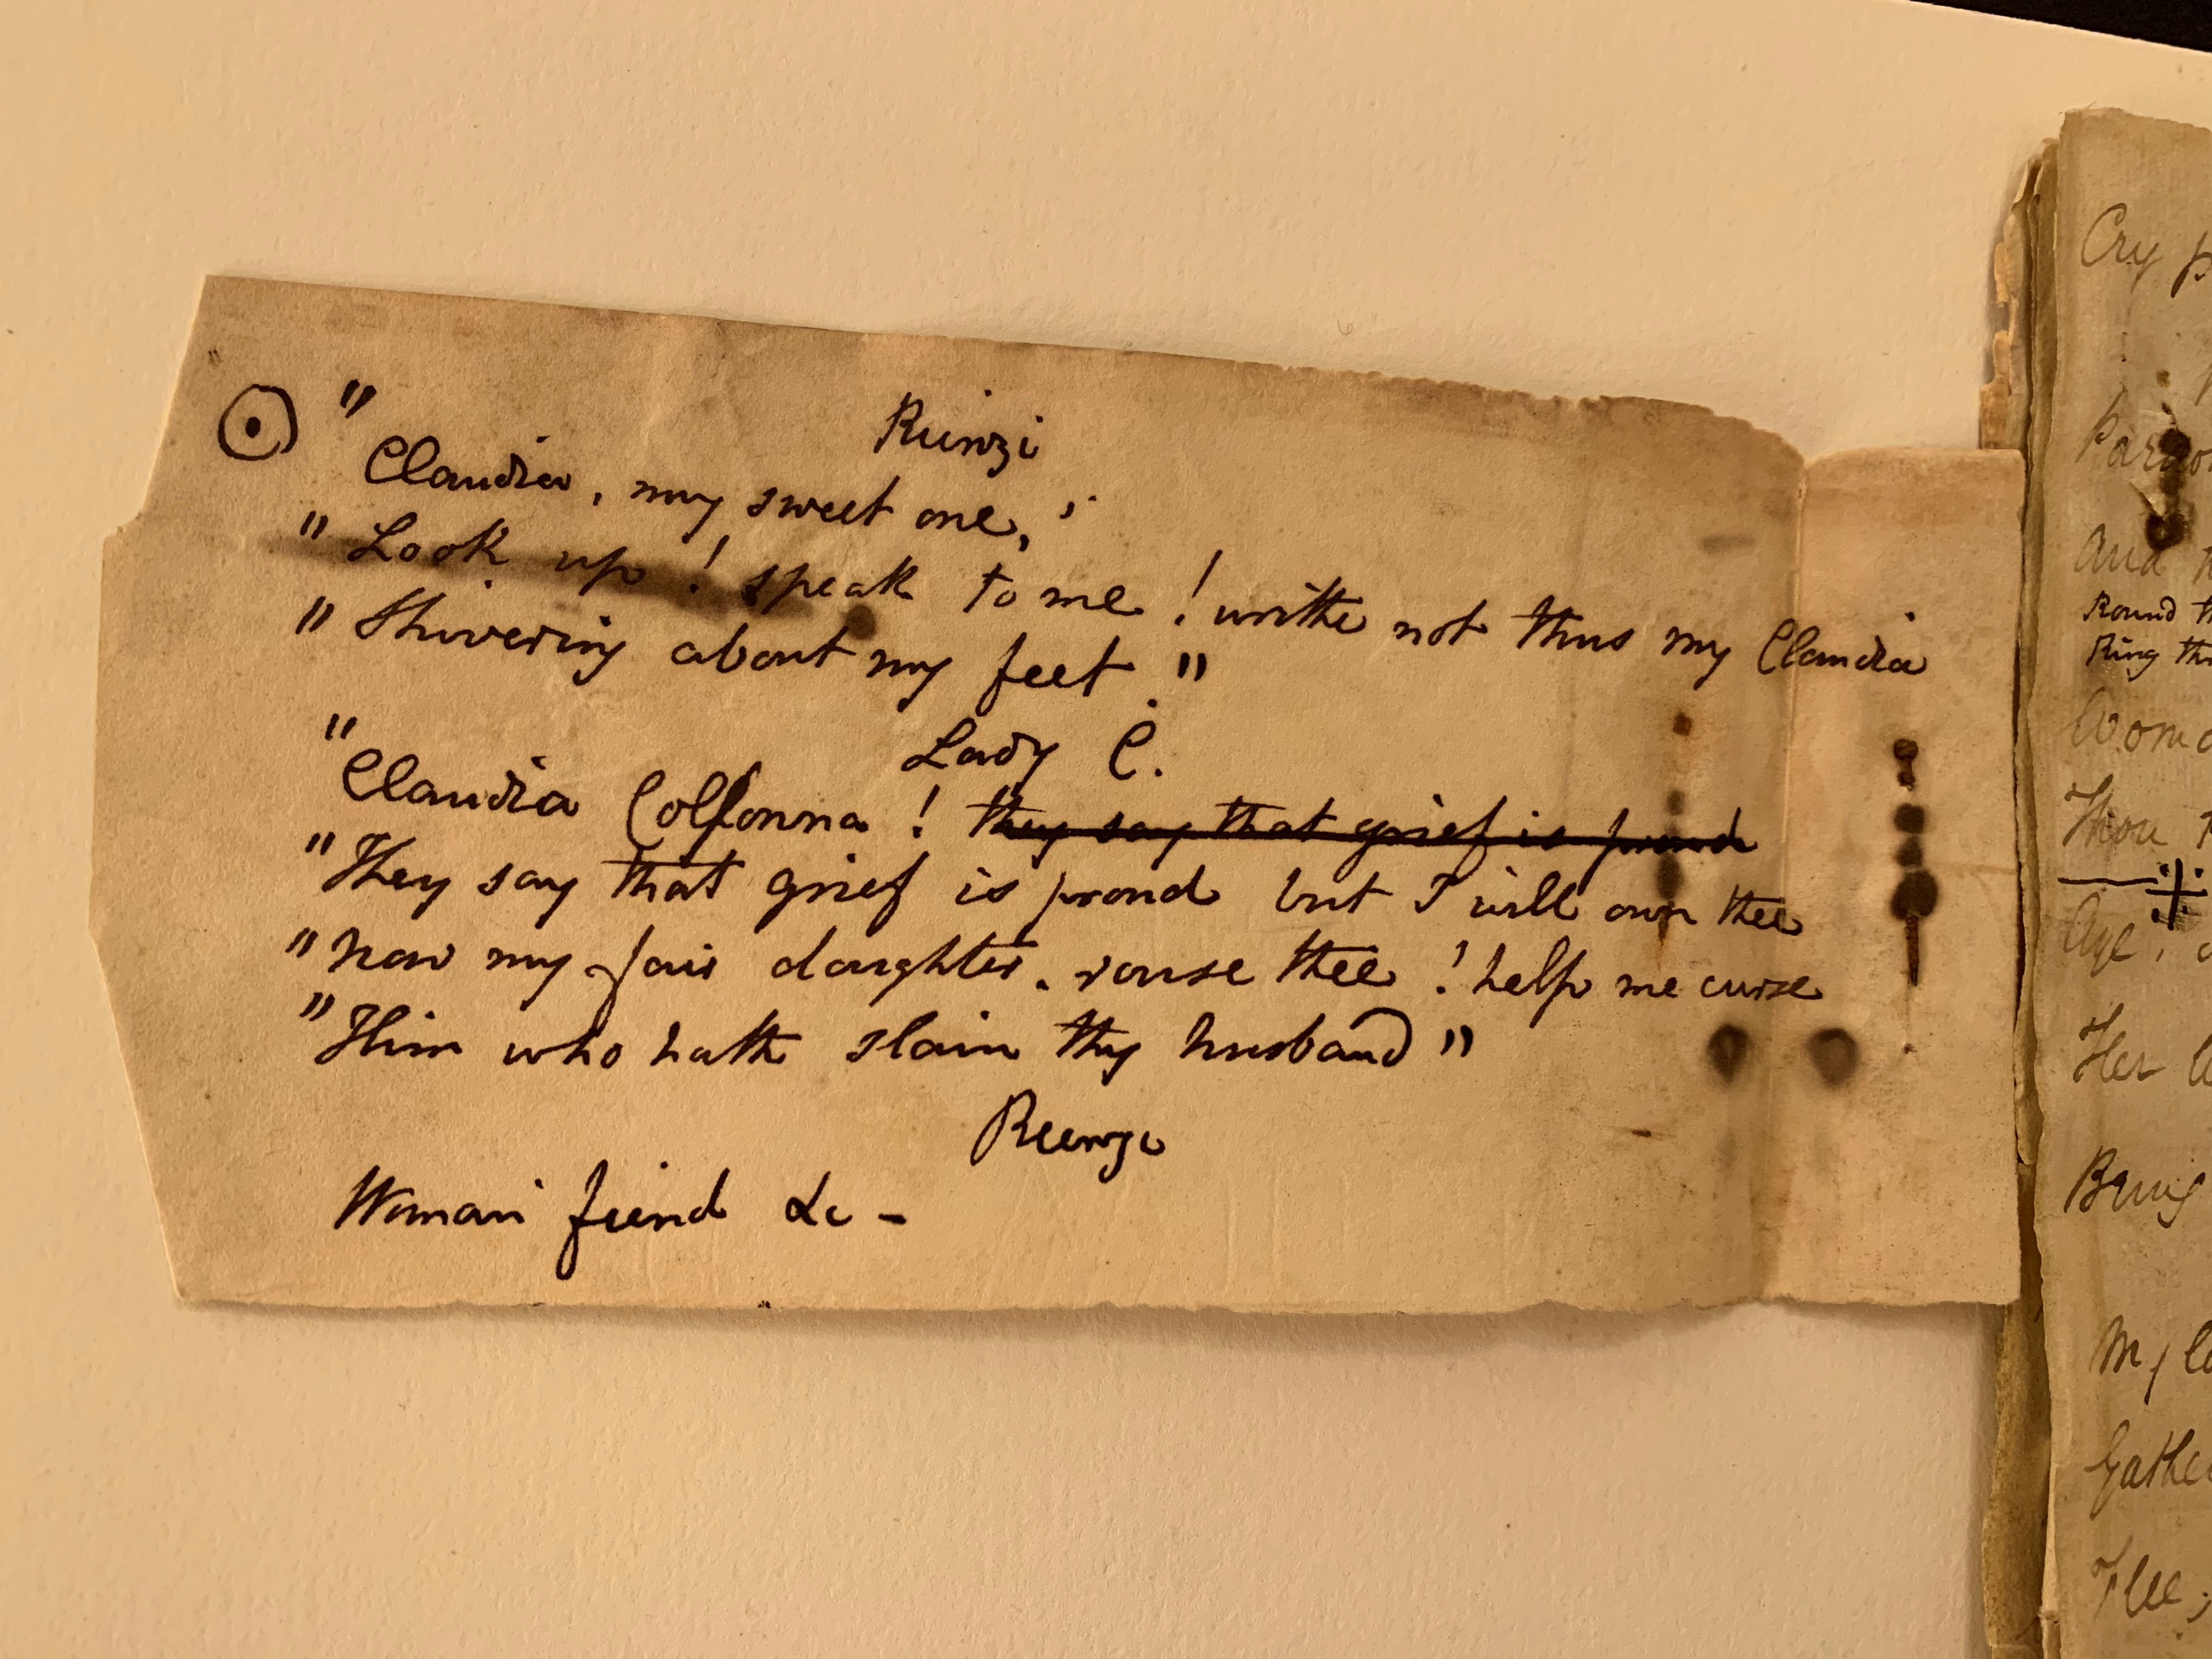 Rienzi
" Claudia, my sweet one,
" Look up! speak to me! writhe not thus my Claudia
" Shivering about my feet."
Lady C.
" Claudia Colfonna! they say that grief is proud
" They say that grief is proud but I will own thee
" Now my fair daughter. rouse thee! help me curse
" Him who hath slain thy husband"
Rienzi
Woman fiend &c -
Cry
and
Round
Ring
Thou
Aye,
Her
My
Flee;